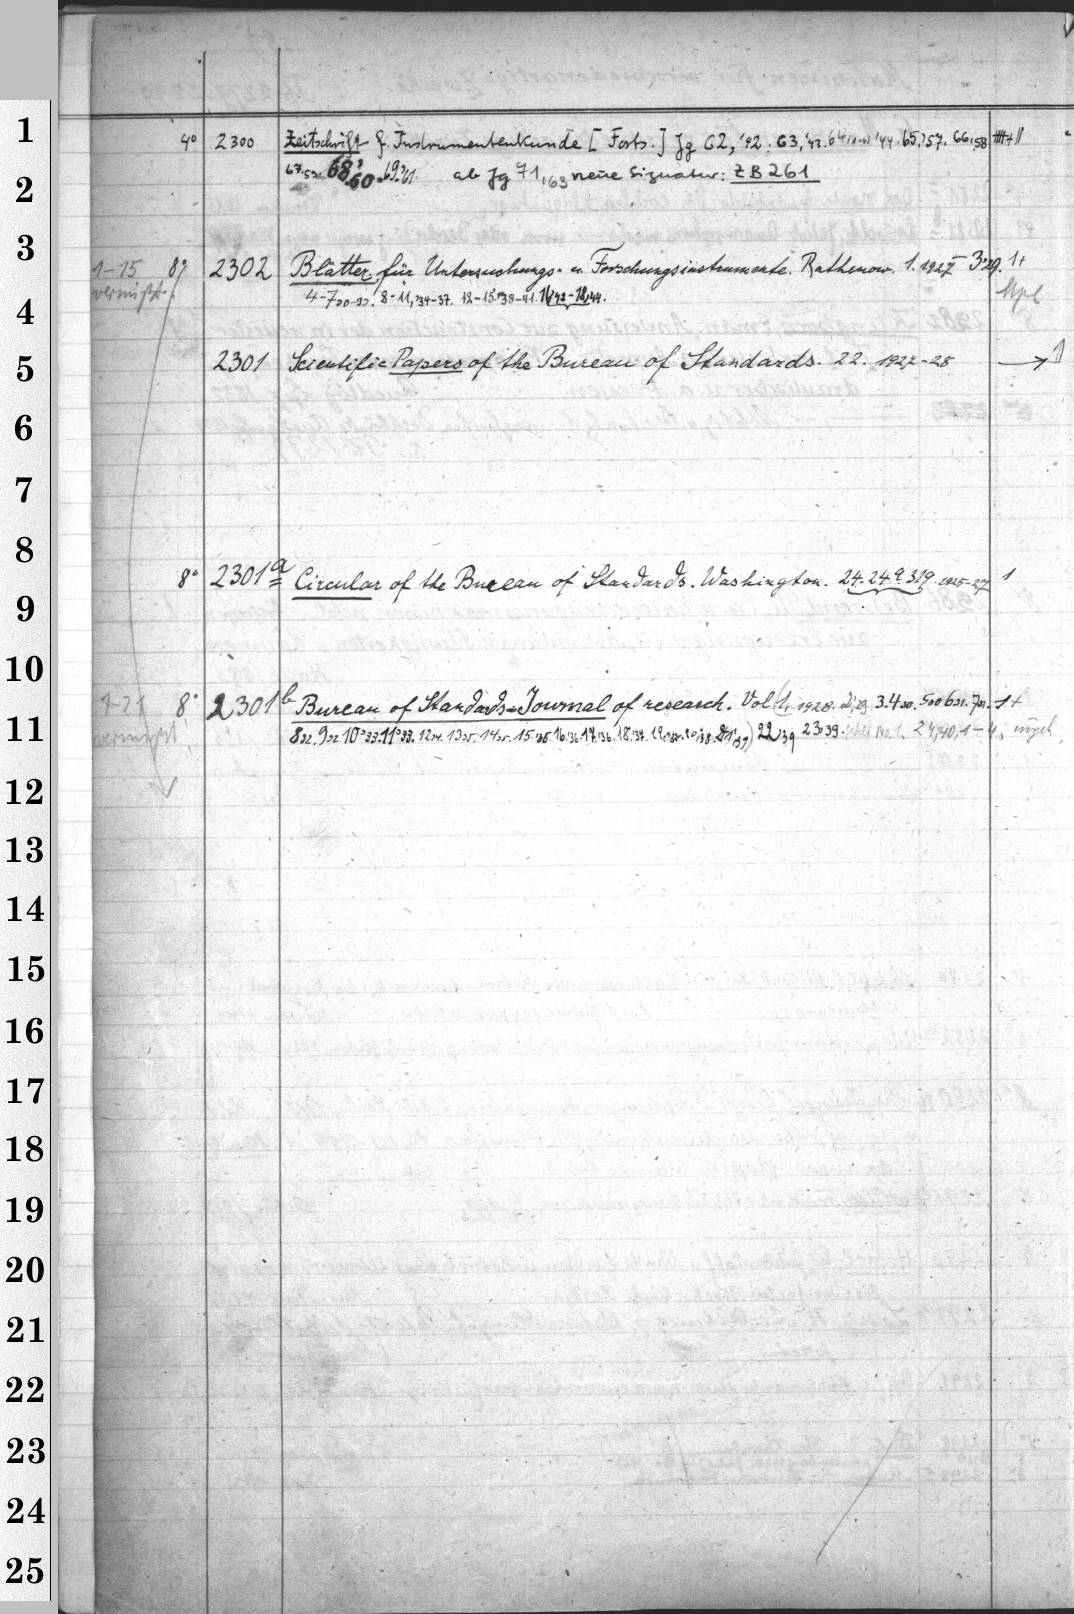 1
4° 2300 Zeitschrift f. Instrumentenkunde [Forts.] Jg 62,'42. 63,'43. 64 '44. 65,'57. 66,'58
2
67.59. 68,'60. 69,'61. ab Jg 71,'63 neue Signatur: ZB 261
3
1-15 8° 2302 Blätter für Untersuchungs- u. Forschungsinstrumente. Rathenow. 1. 1927 3'29. 1+
vermißt. 4-7 30-33. 8-11,'34-37. 12-15.'38-41. 16,'42-18,44.
4
5
2301 Scientific Papers of the Bureau of Standards. 22. 1927-28 →
6
7
8
8° 2301a Circular of the Bureau of Standards. Washington. 24.249.319. 1925-27 1
9
10
1-21 8° 2301b Bureau of Standards-Journal of research. Vol 1, 1928. 2,'29 3.4 30. 5 30 6 31. 7 31. 1+
11
vermißt, 8 32. 9 32 10'33. 11'33. 12 34. 13 35. 14 35. 15'35 16'36 17.'36. 18.'37. 22,'39 23,39. fehlt No. 1. 24,40,1-4,
12
13
14
15
16
17
18
19
20
21
22
23
24
25